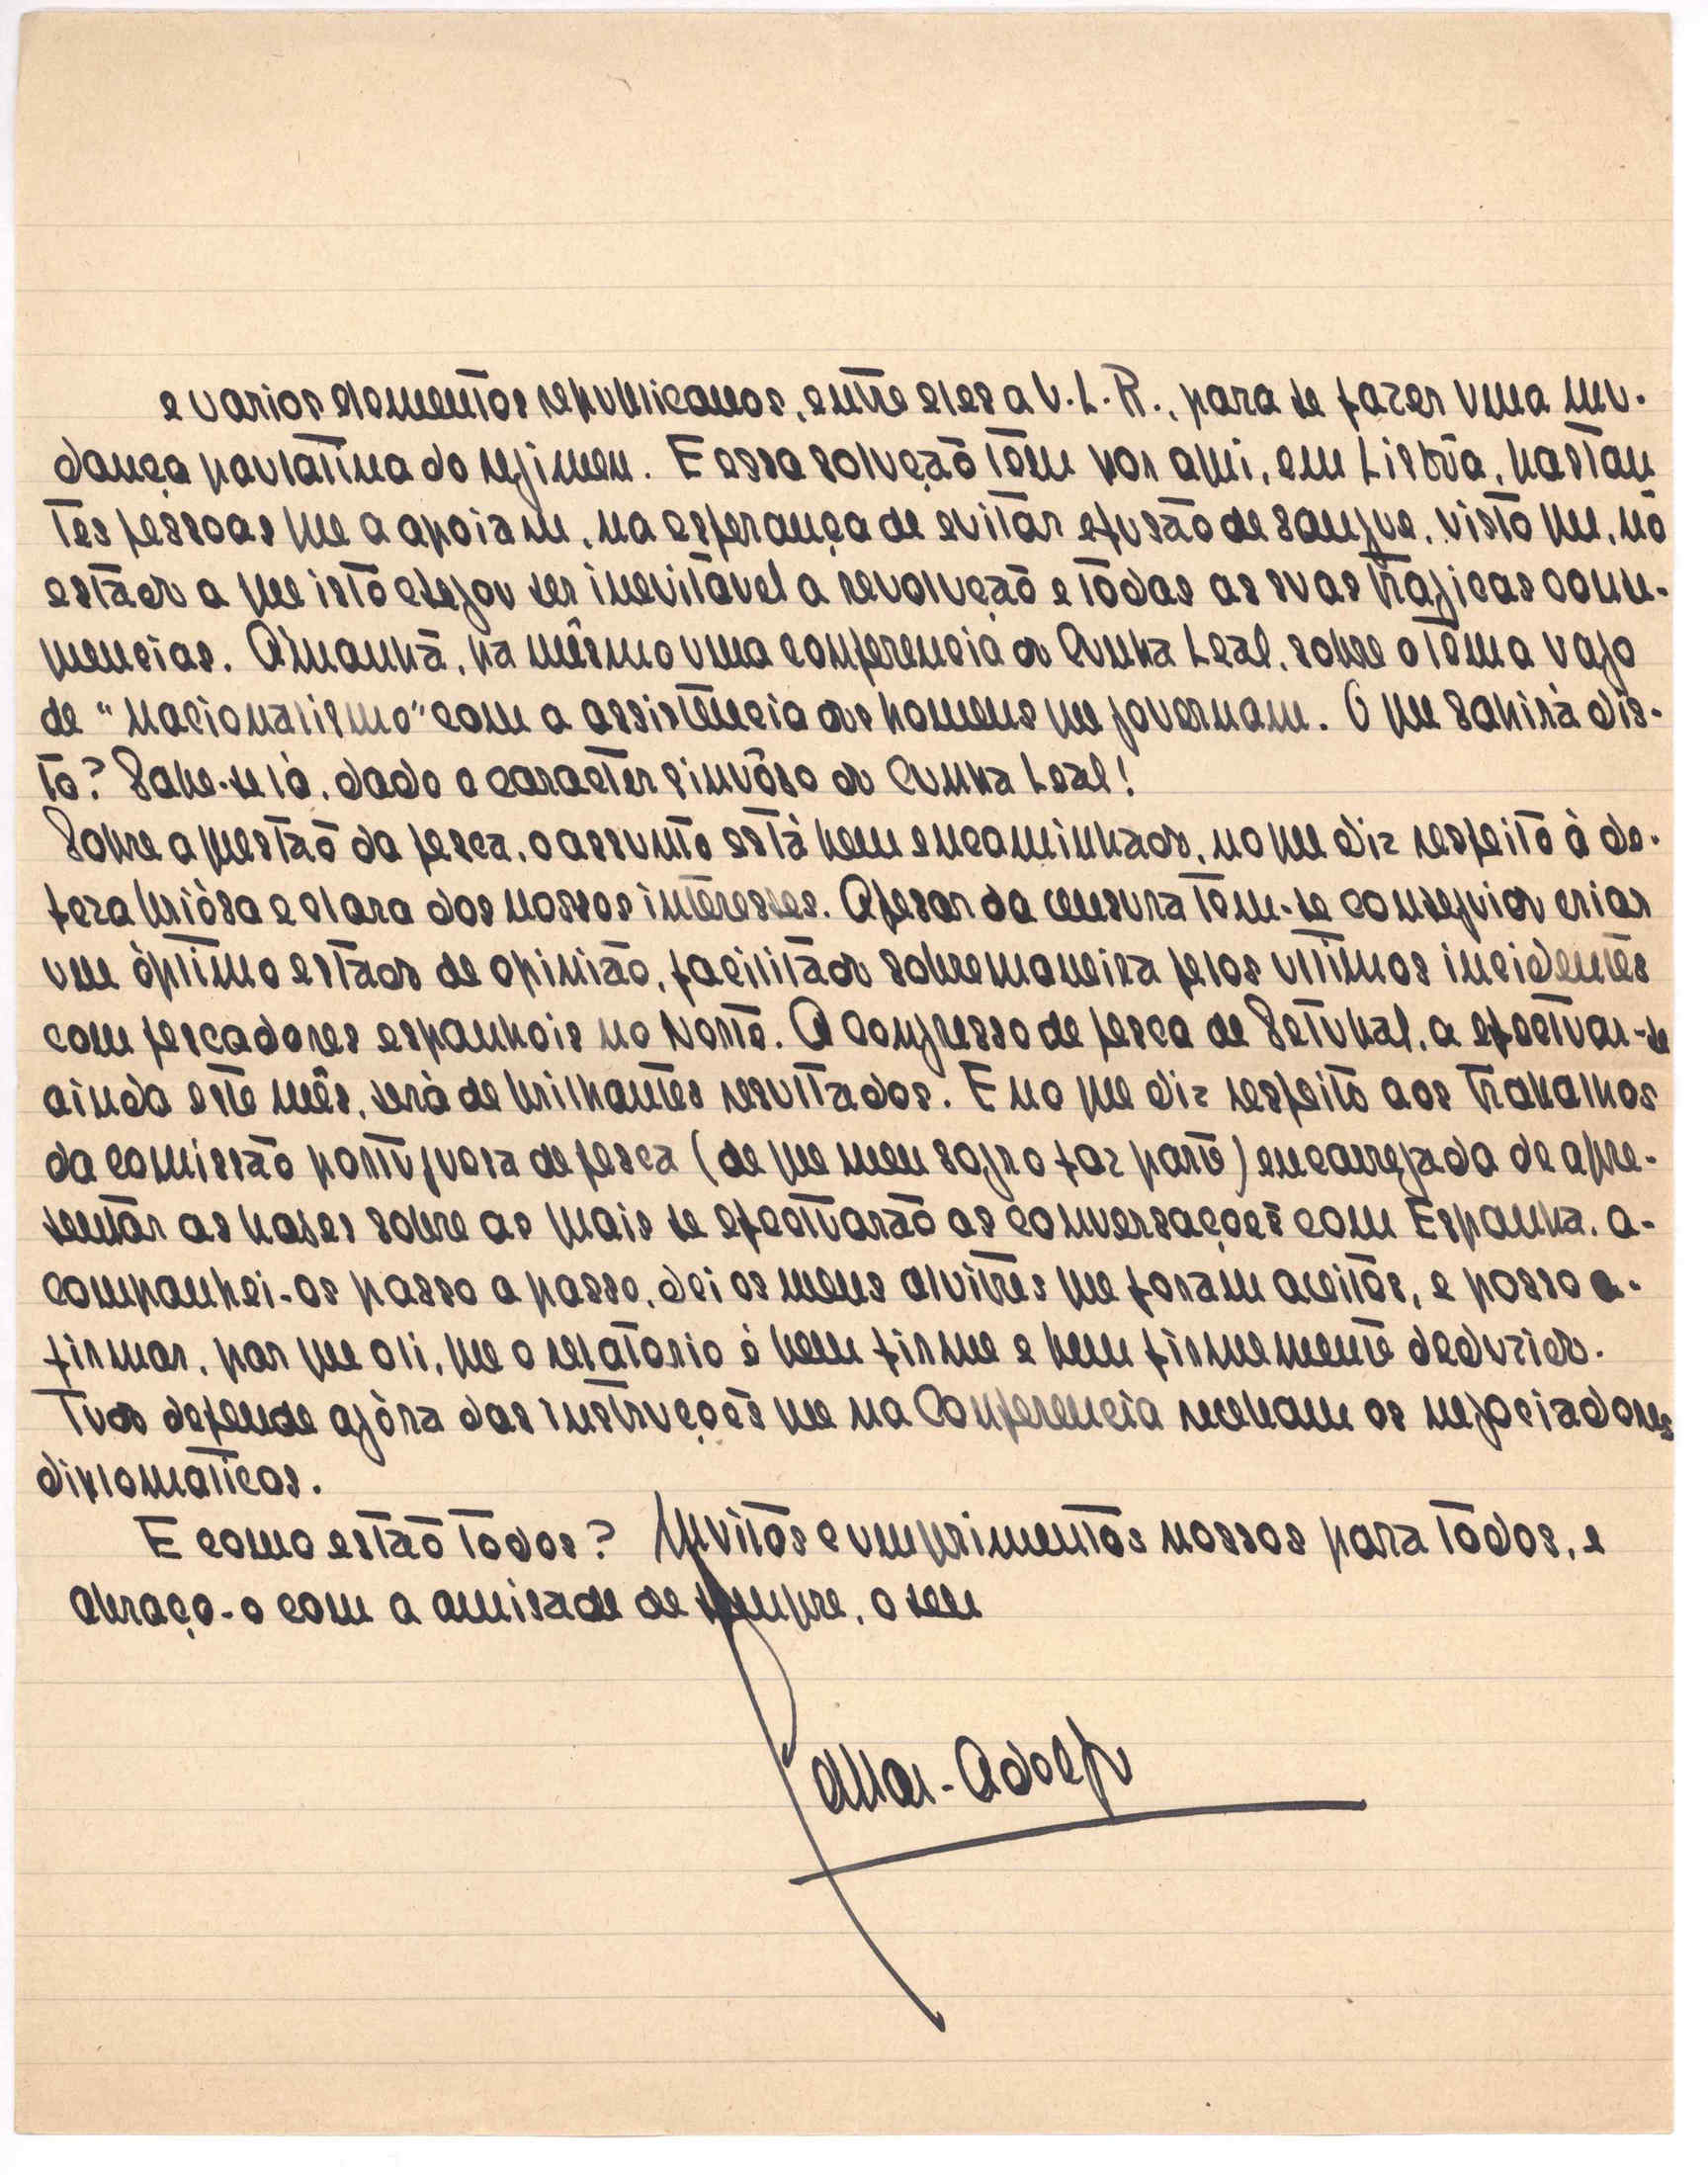 e varios elementos republicanos, entre eles a U.L.R., para se fazer uma mu-
dança paulatina do regimen. E essa solução tem por aqui, em Lisbôa, bastan
tes pessoas que a apoiam, na esperança de evitar efusão de sangue, visto que, no
estado a que isto chegou ser inevitável a revolução e todas as suas trágicas conse-
quencias. Amanhã, ha mêsmo uma conferencia do Cunha Leal, sobre o têma vago
de "nacionalismo" com a assistência dos homens que governam. O que sahirá dis-
to? Sabe-se lá, dado o caracter sinuôso do Cunha Leal!
Sobre a questão da pesca, o assunto está bem encaminhado, no que diz respeito à de-
feza briósa e clara dos nossos interesses. Apesar da censura tem-se conseguido criar
um óptimo estado de opinião, facilitado sobremaneira pelos ultimos incidentes
com pescadores espanhois no Norte. O Congresso de pesca de Setubal, a efectuar-se
ainda este mês, será de brilhantes resultados. E no que diz respeito aos trabalhos
da comissão portuguesa de pesca (de que meu sogro faz parte) encarregada de apre-
sentar as bases sobre as quais se efectuarão as conversações com Espanha, a-
companhei-os passo a passo, dei os meus alvitres que foram aceitos, e posso a-
firmar, por que o li, que o relatorio é bem firme e bem firmemente deduzido.
Tudo depende agóra das instruções que na Conferencia recebam os negociadores
diplomaticos.
E como estão todos? Muitos cumprimentos nossos para todos, e
abraço-o com a amisade de sempre, o seu